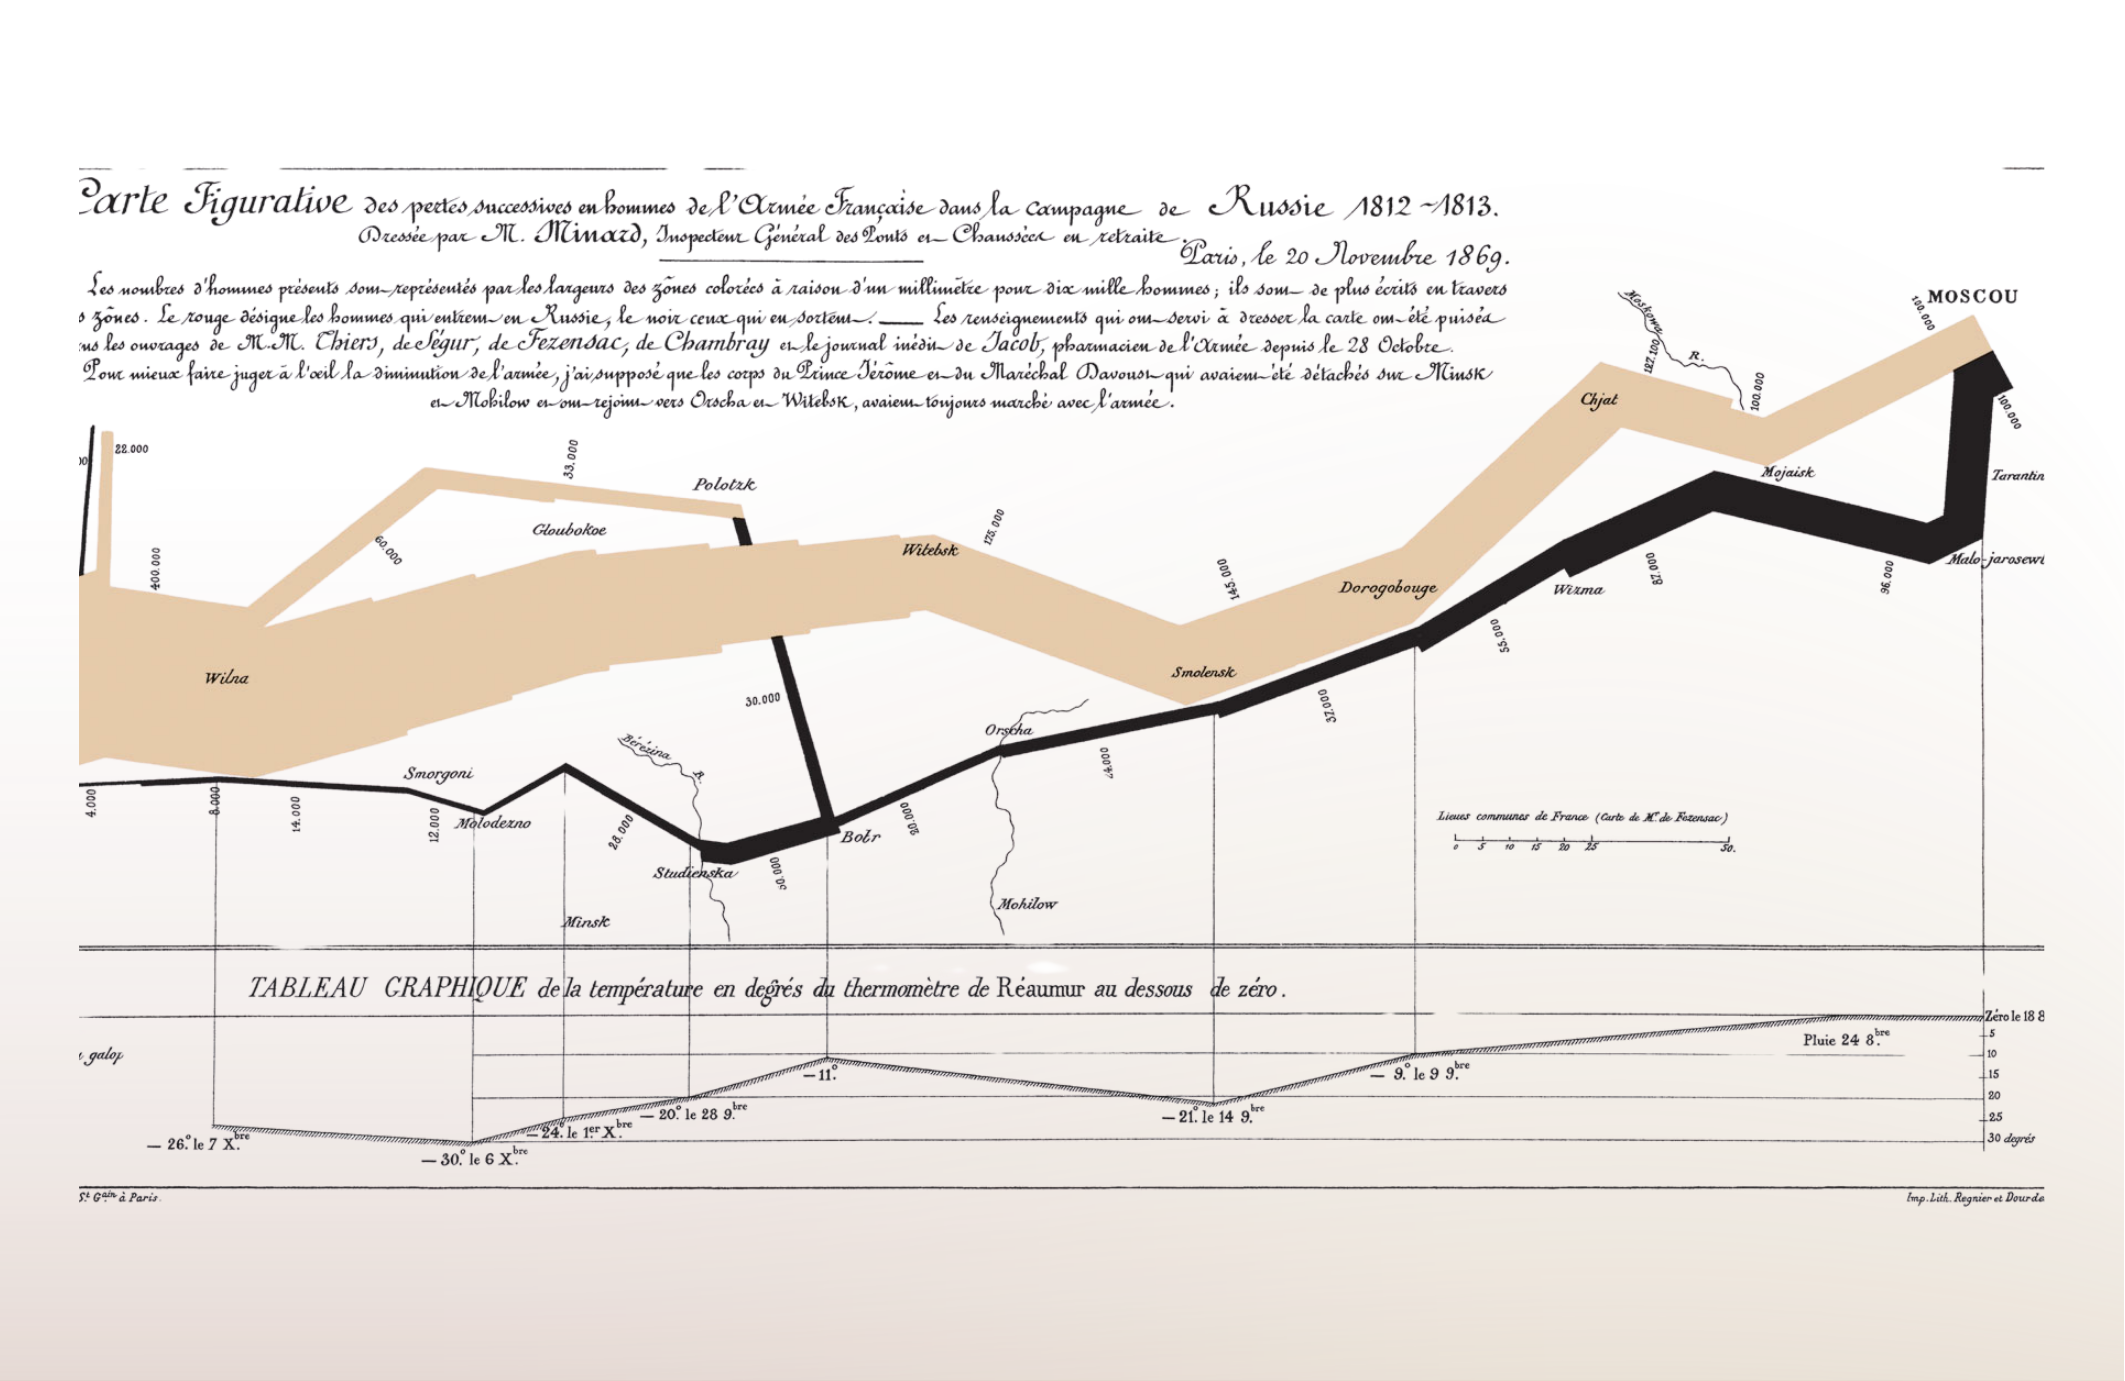 Carte Figurative des pertes successives en hommes de l'Armée Française dans la campagne de Russie 1812~1813.
Dressée par M. Minard, Inspecteur Général des Ponts et Chaussées en retraite.
Paris, le 20 Novembre 1869.
Les nombres d'hommes présents sont représentés par les largeurs des zônes colorées à raison d'un millimètre pour dix mille hommes; ils sont de plus écrits en travers
s zônes. Le rouge désigne les hommes qui entrent en Russie, le noir ceux qui en sortent. — Les renseignements qui ont servi à dresser la carte ont été puisés
ns les ouvrages de M.M. Thiers, de Ségur, de Fezensac, de Chambray et le journal inédit de Jacob, pharmacien de l'Armée depuis le 28 Octobre.
Pour mieux faire juger à l'œil la diminution de l'armée, j'ai supposé que les corps du Prince Jérôme et du Maréchal Davoust qui avaient été détachés sur Minsk
et Mohilow et ont rejoint vers Orscha et Witebsk, avaient toujours marché avec l'armée.
Moskowa R.
MOSCOU
100.000
127.100
100.000
100.000
Chjat
Mojaisk
Tarantin
Malo-jarosewi
22.000
400.000
60.000
33.000
Gloubokoe
Polotzk
Witebsk
175.000
145.000
Dorogobouge
Wizma
87.000
96.000
55.000
37.000
Smolensk
Wilna
30.000
Bérézina R.
Orscha
24.000
20.000
Smorgoni
Molodezno
4.000
8.000
14.000
12.000
28.000
Studienska
50.000
Bobr
Minsk
Mohilow
Lieues communes de France (Carte de M. de Fezensac)
0 5 10 15 20 25 50.
TABLEAU GRAPHIQUE de la température en degrés du thermomètre de Réaumur au dessous de zéro.
galop
Zéro le 18 8
5
10
15
20
25
30 degrés
Pluie 24 8.bre
— 9.° le 9 9.bre
— 21.° le 14 9.bre
— 11.°
— 20.° le 28 9.bre
— 24.° le 1.er X.bre
— 30.° le 6 X.bre
— 26.° le 7 X.bre
St. Gain à Paris.
Imp. Lith. Regnier et Dourde